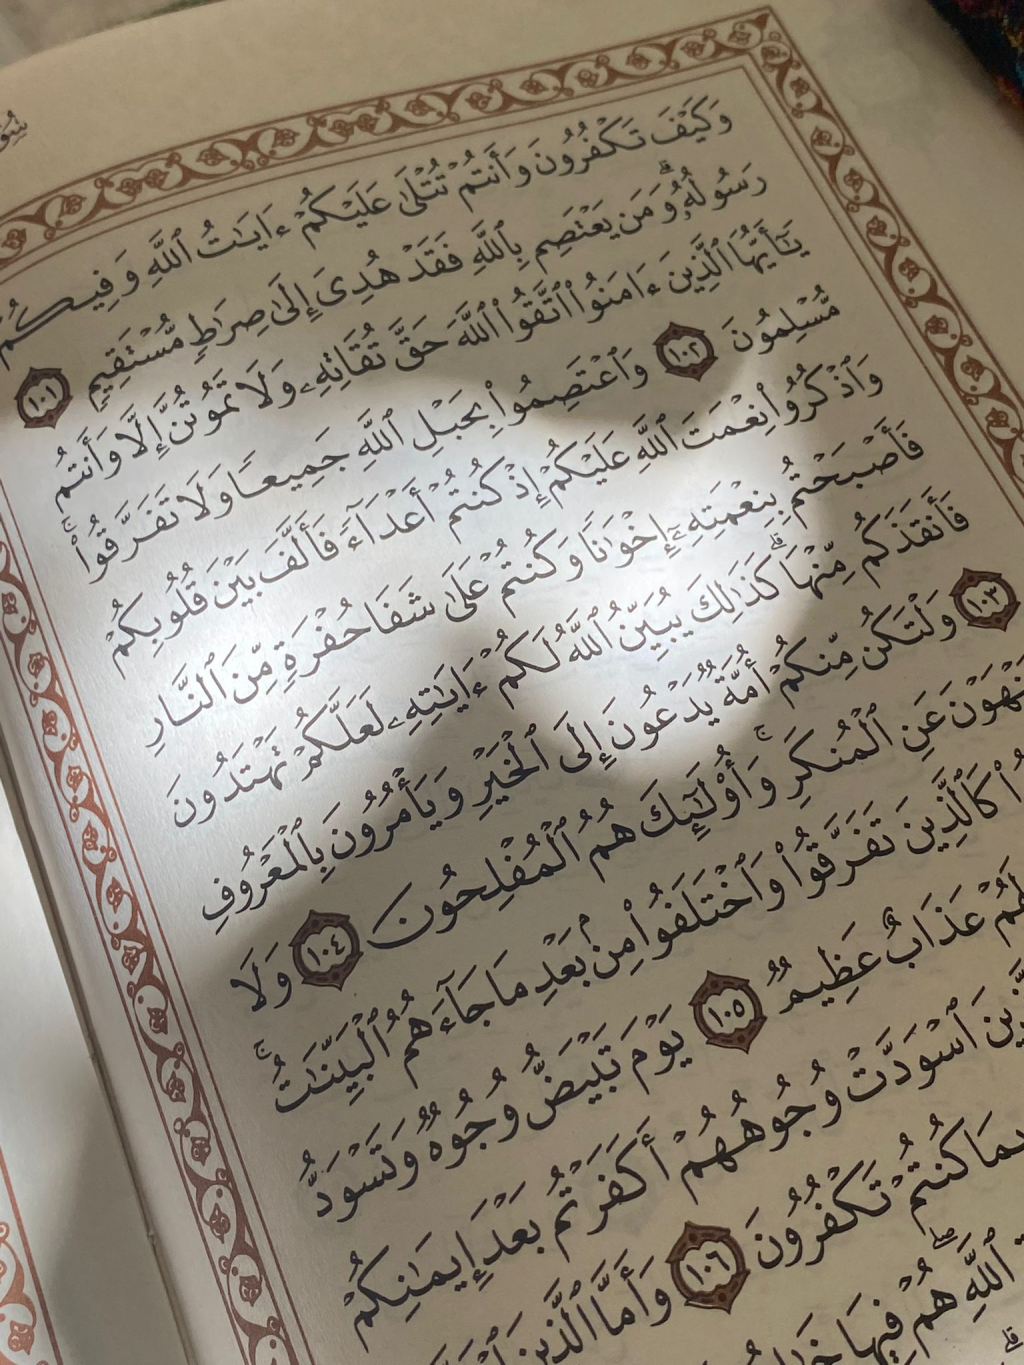 سُو
وَكَيْفَ تَكْفُرُونَ وَأَنتُمْ تُتْلَىٰ عَلَيْكُمْ ءَايَٰتُ ٱللَّهِ وَفِيكُمْ
رَسُولُهُۥۗ وَمَن يَعْتَصِم بِٱللَّهِ فَقَدْ هُدِىَ إِلَىٰ صِرَٰطٍ مُّسْتَقِيمٍ ١٠١
يَٰٓأَيُّهَا ٱلَّذِينَ ءَامَنُوا۟ ٱتَّقُوا۟ ٱللَّهَ حَقَّ تُقَاتِهِۦ وَلَا تَمُوتُنَّ إِلَّا وَأَنتُم
مُّسْلِمُونَ ١٠٢ وَٱعْتَصِمُوا۟ بِحَبْلِ ٱللَّهِ جَمِيعًا وَلَا تَفَرَّقُوا۟ۚ
وَٱذْكُرُوا۟ نِعْمَتَ ٱللَّهِ عَلَيْكُمْ إِذْ كُنتُمْ أَعْدَآءً فَأَلَّفَ بَيْنَ قُلُوبِكُمْ
فَأَصْبَحْتُم بِنِعْمَتِهِۦٓ إِخْوَٰنًا وَكُنتُمْ عَلَىٰ شَفَا حُفْرَةٍ مِّنَ ٱلنَّارِ
فَأَنقَذَكُم مِّنْهَاۗ كَذَٰلِكَ يُبَيِّنُ ٱللَّهُ لَكُمْ ءَايَٰتِهِۦ لَعَلَّكُمْ تَهْتَدُونَ
١٠٣ وَلْتَكُن مِّنكُمْ أُمَّةٌ يَدْعُونَ إِلَى ٱلْخَيْرِ وَيَأْمُرُونَ بِٱلْمَعْرُوفِ
نْهَوْنَ عَنِ ٱلْمُنكَرِۚ وَأُو۟لَٰٓئِكَ هُمُ ٱلْمُفْلِحُونَ ١٠٤ وَلَا
كَٱلَّذِينَ تَفَرَّقُوا۟ وَٱخْتَلَفُوا۟ مِنۢ بَعْدِ مَا جَآءَهُمُ ٱلْبَيِّنَٰتُۚ
لَهُمْ عَذَابٌ عَظِيمٌ ١٠٥ يَوْمَ تَبْيَضُّ وُجُوهٌ وَتَسْوَدُّ
ٱسْوَدَّتْ وُجُوهُهُمْ أَكَفَرْتُم بَعْدَ إِيمَٰنِكُمْ
بِمَا كُنتُمْ تَكْفُرُونَ ١٠٦ وَأَمَّا ٱلَّذِينَ
ٱللَّهِۖ هُمْ فِيهَا